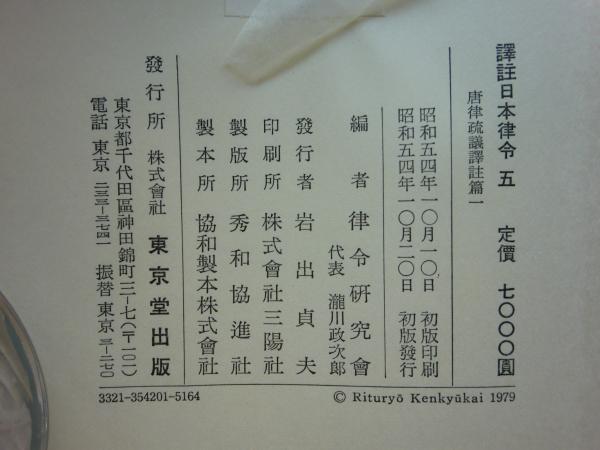 譯註日本律令 五　定價　七〇〇〇圓
唐律疏議譯註篇一
昭和五四年一〇月一〇日　初版印刷
昭和五四年一〇月二〇日　初版發行
編者　律令硏究會
代表　瀧川政次郎
發行者　岩出貞夫
印刷所　株式會社三陽社
製版所　秀和協進社
製本所　協和製本株式會社
發行所　株式會社　東京堂出版
東京都千代田區神田錦町三―七(〒一〇一)
電話　東京　二三三―三七四一　振替　東京　三―二七〇
3321-354201-5164
© Rituryō Kenkyūkai 1979